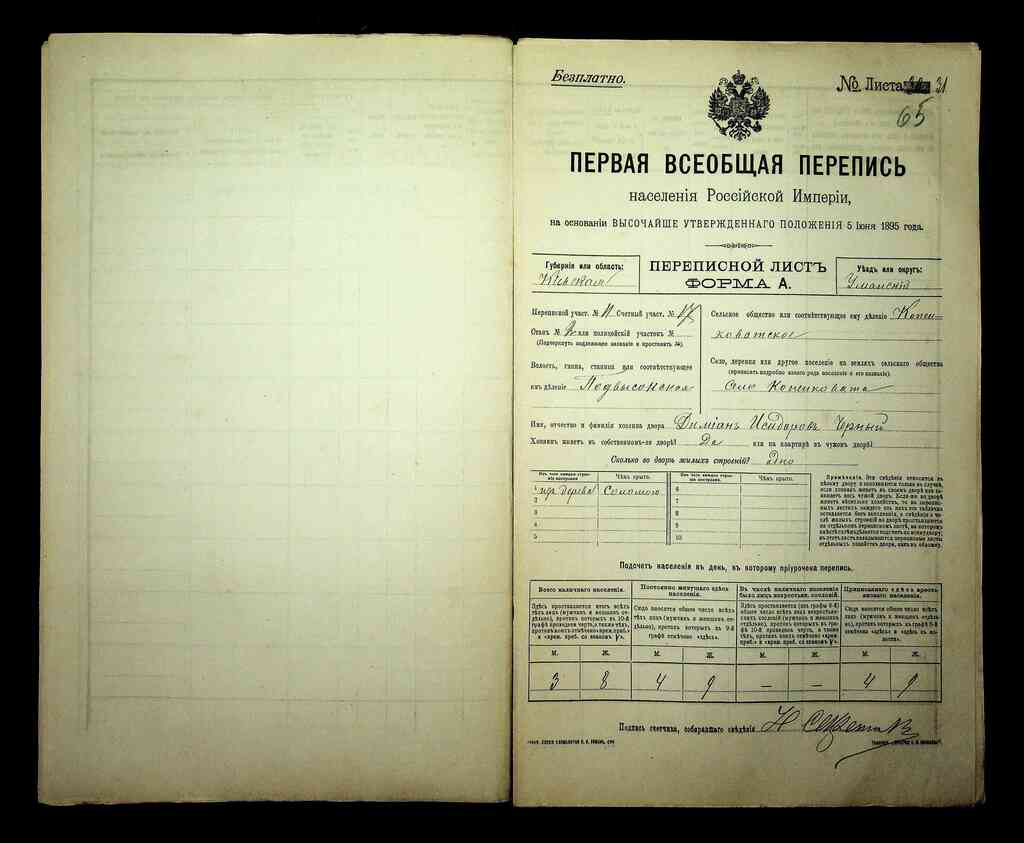 Безплатно.
№ Листа 31
65
ПЕРВАЯ ВСЕОБЩАЯ ПЕРЕПИСЬ
населенія Россійской Имперіи,
на основаніи ВЫСОЧАЙШЕ УТВЕРЖДЕННАГО ПОЛОЖЕНІЯ 5 Іюня 1895 года.
Губернія или область:
Кіевская
ПЕРЕПИСНОЙ ЛИСТЪ
ФОРМА А.
Уѣздъ или округъ:
Уманскій
Переписной участ. № Счетный участ. № 17
Станъ № 2 или полицейскій участокъ №
(Подчеркнуть надлежащее названіе и проставить №).
Волость, гмина, станица или соотвѣтствующее
имъ дѣленіе Подвысоцкая
Сельское общество или соотвѣтствующее ему дѣленіе Копен-
коватское
Село, деревня или другое поселеніе на земляхъ сельскаго общества
(прописать подробно какого рода поселеніе и его названіе).
Село Копенковата
Имя, отчество и фамилія хозяина двора Диміанъ Исидоровъ Чорный
Хозяинъ живетъ въ собственномъ-ли дворѣ? Да или на квартирѣ въ чужомъ дворѣ?
Сколько во дворѣ жилыхъ строеній? Одно
Изъ чего каждое строеніе построено
Чѣмъ крыто.
Изъ чего каждое строеніе построено.
Чѣмъ крыто.
1 изъ дерева Соломою 6
2 7
3 8
4 9
5 10
Примѣчаніе. Эти свѣдѣнія относятся къ
цѣлому двору и заполняются только въ случаѣ,
если хозяинъ живетъ въ своемъ дворѣ или за-
нимаетъ весь чужой дворъ. Если же во дворѣ
живетъ нѣсколько хозяйствъ, то на перепис-
ныхъ листахъ каждаго изъ нихъ эта табличка
оставляется безъ заполненія, а свѣдѣнія о чи-
слѣ жилыхъ строеній во дворѣ проставляются
на отдѣльномъ переписномъ листѣ, на которомъ
вмѣстѣ съ тѣмъ дѣлается подсчетъ по всему двору;
въ этотъ листъ вкладываются переписные листы
отдѣльныхъ хозяйствъ двора, какъ въ обложку.
Подсчетъ населенія въ день, къ которому пріурочена перепись.
Всего наличнаго населенія.
Постоянно живущаго здѣсь
населенія.
Въ числѣ наличнаго населенія
было лицъ некрестьян. сословій.
Приписаннаго здѣсь кресть-
янскаго населенія.
Здѣсь проставляется итогъ всѣхъ
тѣхъ лицъ (мужчинъ и женщинъ от-
дѣльно), противъ которыхъ въ 10-й
графѣ проведена черта, а также тѣхъ,
противъ коихъ отмѣчено «врем. преб.»
и «врем. преб. со знакомъ V».
Сюда вносится общее число всѣхъ
тѣхъ лицъ (мужчинъ и женщинъ от-
дѣльно), противъ которыхъ въ 9-й
графѣ отмѣчено «здѣсь».
Сюда вносится общее число всѣхъ
тѣхъ лицъ (мужчинъ и женщинъ отдѣль-
но), противъ которыхъ въ графѣ 8-й
отмѣчено «здѣсь» и «здѣсь въ
волости».
М. Ж. М. Ж. М. Ж. М. Ж.
3 8 4 9 — — 4 9
Подпись счетчика, собиравшаго свѣдѣнія